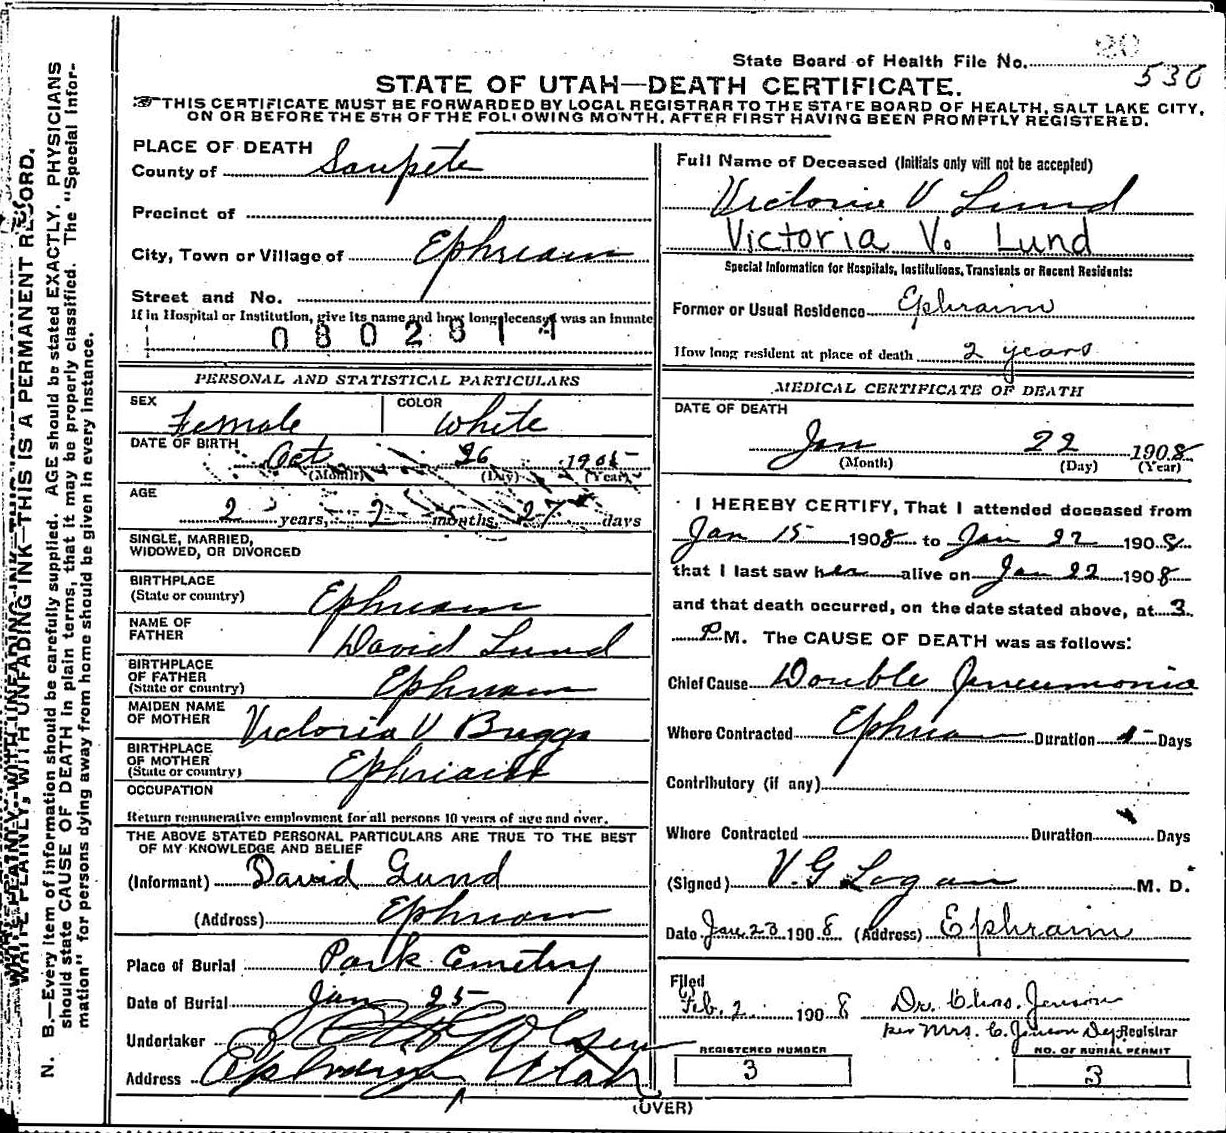 20
State Board of Health File No. 530
STATE OF UTAH—DEATH CERTIFICATE.
THIS CERTIFICATE MUST BE FORWARDED BY LOCAL REGISTRAR TO THE STATE BOARD OF HEALTH, SALT LAKE CITY,
ON OR BEFORE THE 5TH OF THE FOLLOWING MONTH, AFTER FIRST HAVING BEEN PROMPTLY REGISTERED.
PLACE OF DEATH
County of Sanpete
Precinct of
City, Town or Village of Ephriam
Street and No.
If in Hospital or Institution, give its name and how long deceased was an inmate
0802814
PERSONAL AND STATISTICAL PARTICULARS
SEX Female COLOR White
DATE OF BIRTH Oct 26 1905
(Month) (Day) (Year)
AGE
2 years, 2 months, 27 days
SINGLE, MARRIED,
WIDOWED, OR DIVORCED
BIRTHPLACE
(State or country) Ephriam
NAME OF
FATHER David Lund
BIRTHPLACE
OF FATHER
(State or country) Ephriam
MAIDEN NAME
OF MOTHER Victoria V Buggs
BIRTHPLACE
OF MOTHER
(State or country) Ephriam
OCCUPATION
Return remunerative employment for all persons 10 years of age and over.
THE ABOVE STATED PERSONAL PARTICULARS ARE TRUE TO THE BEST
OF MY KNOWLEDGE AND BELIEF
(Informant) David Lund
(Address) Ephriam
Place of Burial Park Cemetry
Date of Burial Jan 25
Undertaker Olsen
Address Ephraim Utah
Full Name of Deceased (Initials only will not be accepted)
Victoria V Lund
Victoria V. Lund
Special Information for Hospitals, Institutions, Transients or Recent Residents:
Former or Usual Residence Ephraim
How long resident at place of death 2 years
MEDICAL CERTIFICATE OF DEATH
DATE OF DEATH
Jan 22 1908
(Month) (Day) (Year)
I HEREBY CERTIFY, That I attended deceased from
Jan 15 1908 to Jan 22 1908
that I last saw her alive on Jan 22 1908
and that death occurred, on the date stated above, at 3
P M. The CAUSE OF DEATH was as follows:
Chief Cause Double Pneumonia
Where Contracted Ephriam Duration Days
Contributory (if any)
Where Contracted Duration Days
(Signed) V. G Logan M. D.
Date Jan 23 1908 (Address) Ephraim
Filed
Feb. 2 1908 Dr. Chas. Jenson
per Mrs. C. Jenson Dep. Registrar
REGISTERED NUMBER
3
NO. OF BURIAL PERMIT
3
(OVER)
WRITE PLAINLY, WITH UNFADING INK—THIS IS A PERMANENT RECORD.
N. B.—Every item of information should be carefully supplied. AGE should be stated EXACTLY. PHYSICIANS
should state CAUSE OF DEATH in plain terms, that it may be properly classified. The "Special Infor-
mation" for persons dying away from home should be given in every instance.